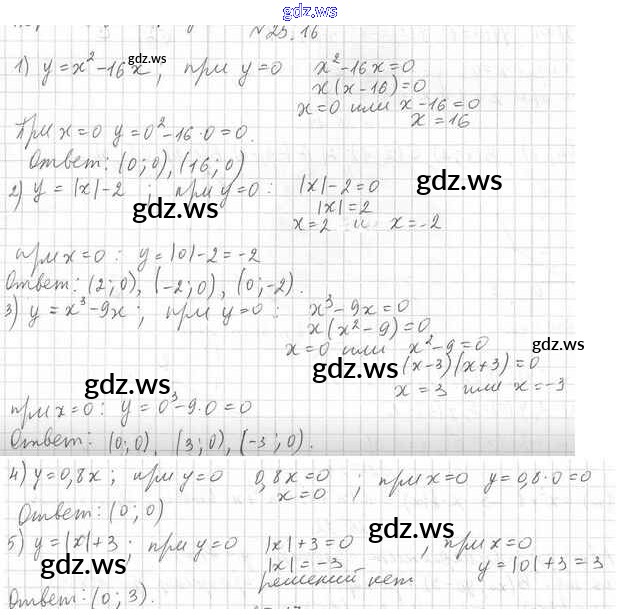 gdz.ws
№ 25.16
1) y = x² - 16x, при y = 0 x² - 16x = 0
x(x - 16) = 0
x = 0 или x - 16 = 0
x = 16
При x = 0 y = 0² - 16·0 = 0.
Ответ: (0; 0), (16; 0)
2) y = |x| - 2 ; при y = 0 : |x| - 2 = 0
|x| = 2
x = 2 и x = -2
при x = 0 : y = |0| - 2 = -2
Ответ: (2; 0), (-2; 0), (0; -2).
3) y = x³ - 9x ; при y = 0 : x³ - 9x = 0
x(x² - 9) = 0
x = 0 или x² - 9 = 0
(x - 3)(x + 3) = 0
x = 3 или x = -3
при x = 0 : y = 0³ - 9·0 = 0
Ответ: (0; 0), (3; 0), (-3; 0).
4) y = 0,8x ; при y = 0 0,8x = 0 ; при x = 0 y = 0,8·0 = 0
x = 0
Ответ: (0; 0)
5) y = |x| + 3 ; при y = 0 |x| + 3 = 0 , при x = 0
|x| = -3 y = |0| + 3 = 3
решений нет
Ответ: (0; 3).
gdz.ws
gdz.ws
gdz.ws
gdz.ws
gdz.ws
gdz.ws
gdz.ws
gdz.ws